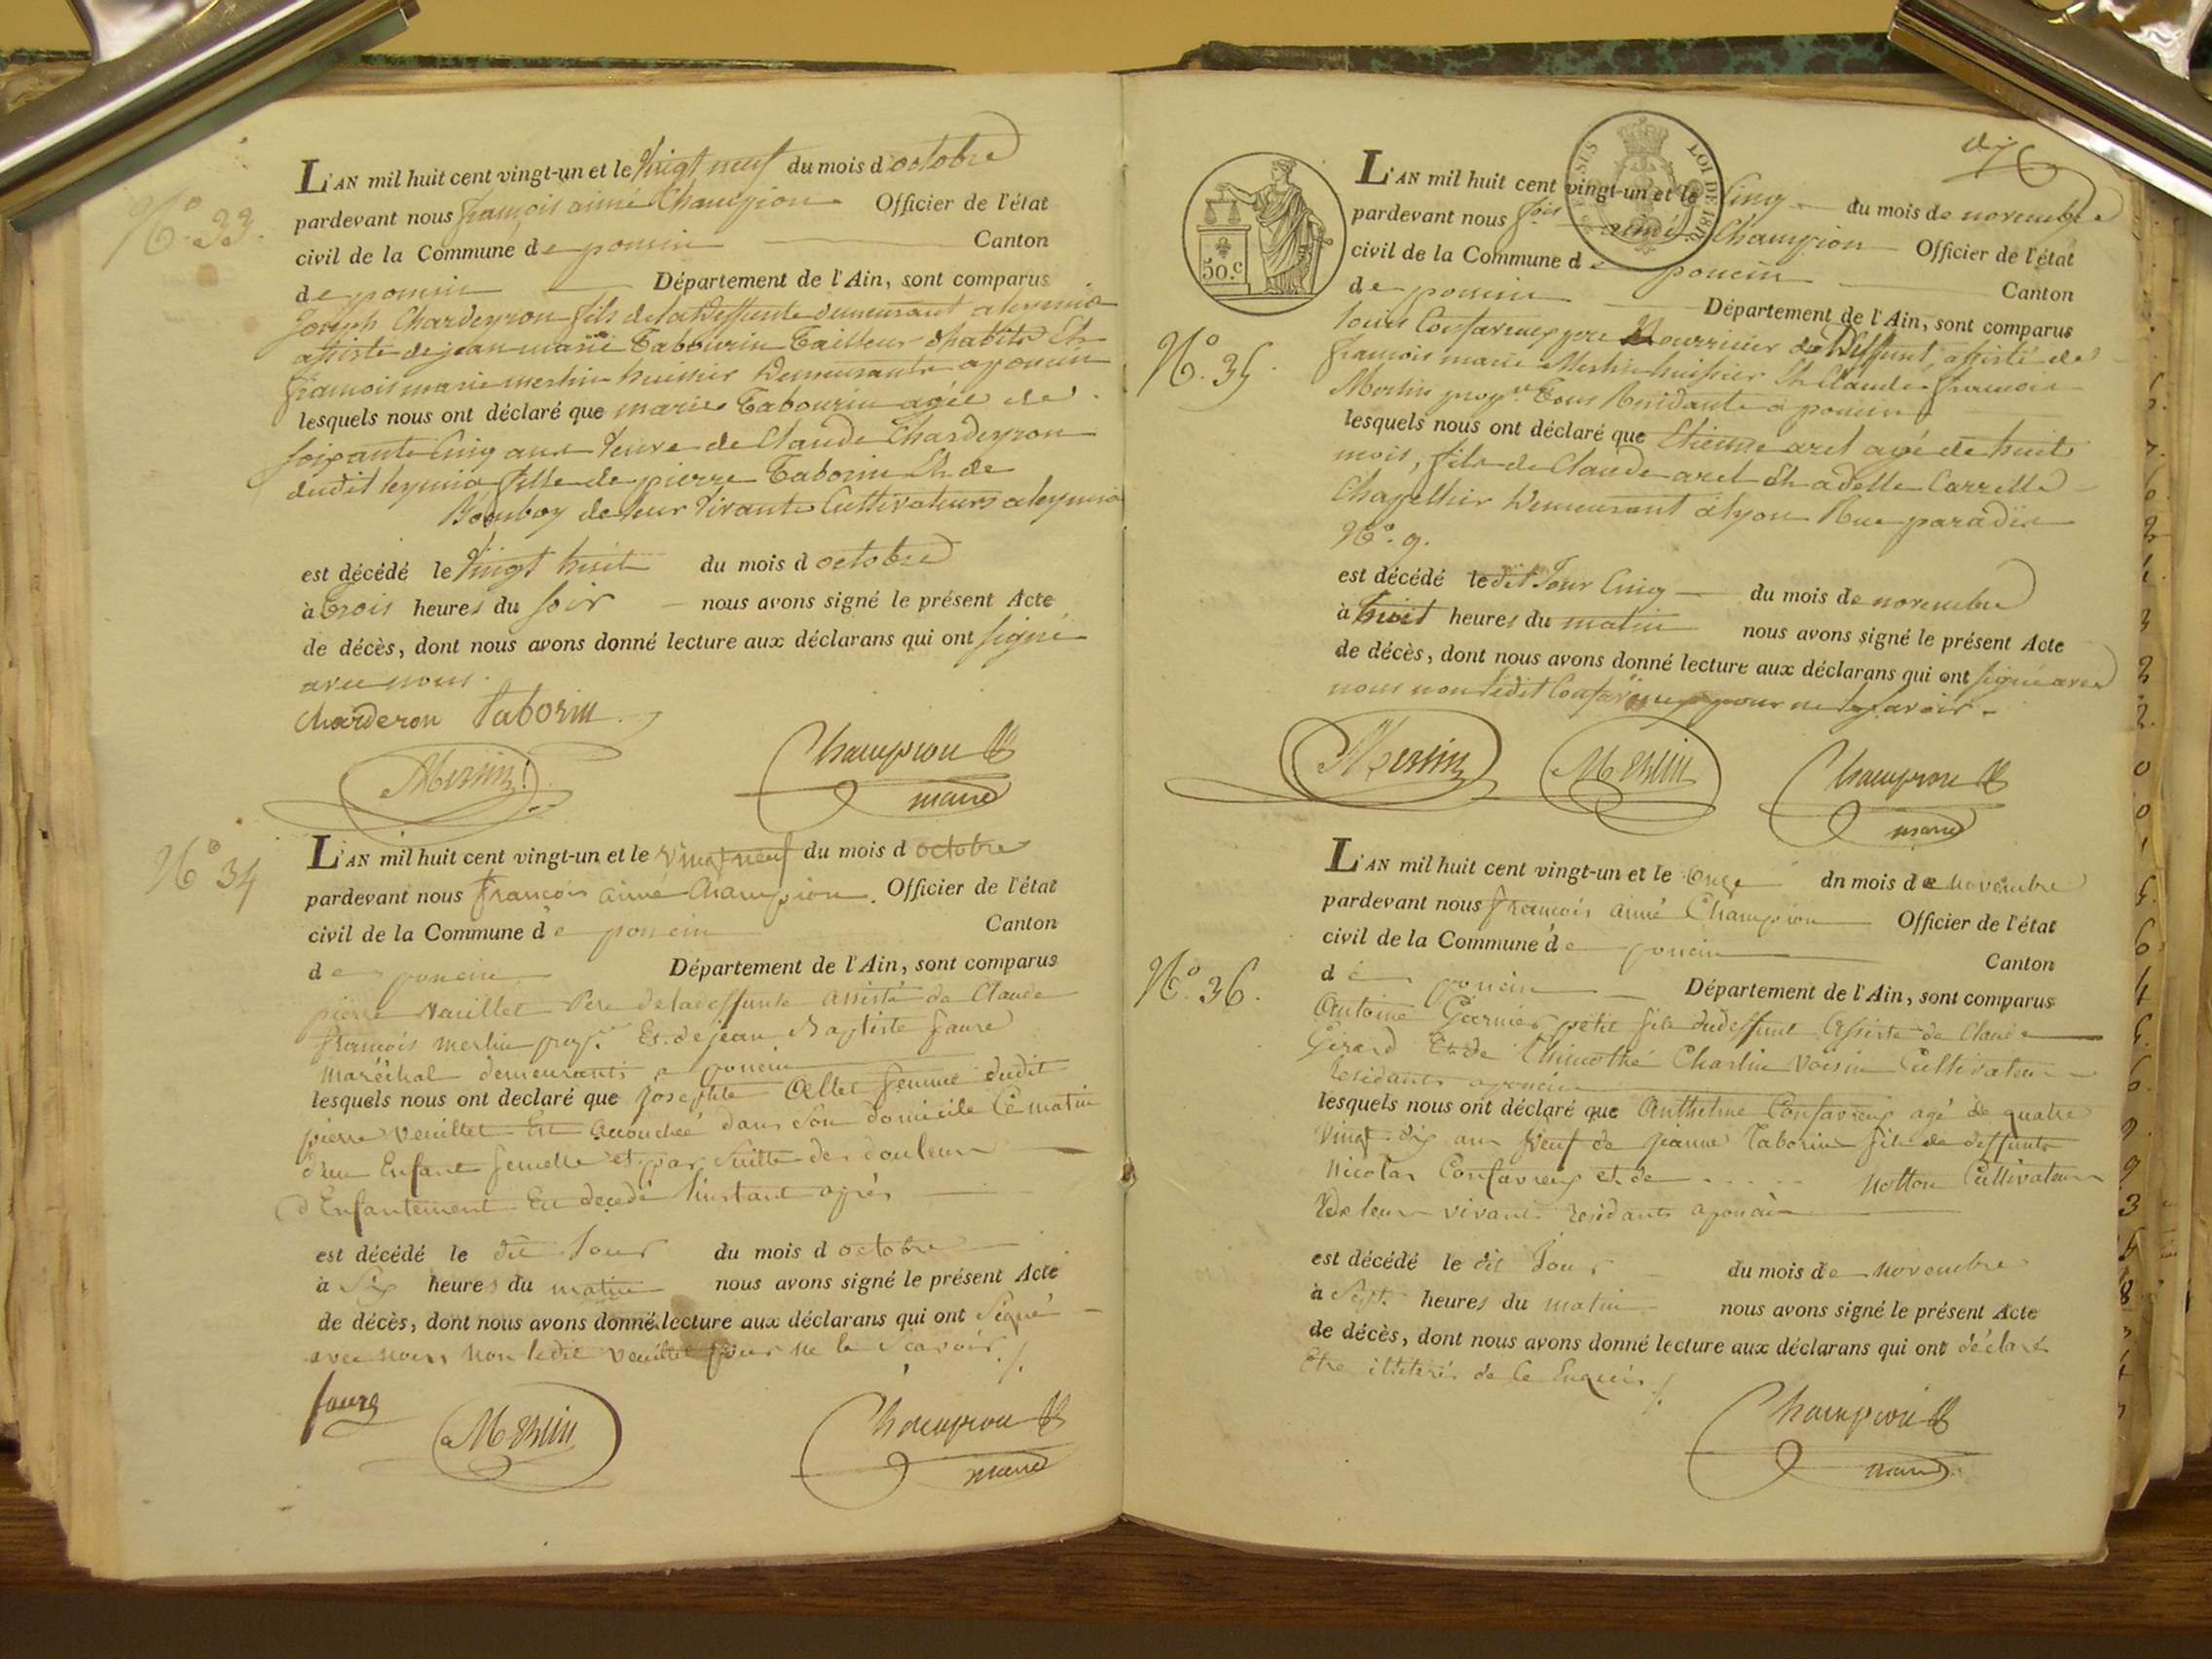 N.° 33.
L'AN mil huit cent vingt-un et le vingt neuf du mois d octobre
pardevant nous françois aimé Champion Officier de l'état
civil de la Commune de poncin Canton
de poncin Département de l'Ain, sont comparus
Joseph Charderon fils de la deffunte demeurant a leymia
assisté de jean marie Tabourin Tailleur d'habits Et
françois marie merlin huissier demeurants a poncin
lesquels nous ont déclaré que marie Tabourin agée de
soixante Cinq ans veuve de Claude Charderon
dudit leymia fille de pierre Taborin Et de
de leur vivants Cultivateurs a leymia
est décédé le vingt huit du mois d octobre
à trois heures du soir nous avons signé le présent Acte
de décès, dont nous avons donné lecture aux déclarans qui ont signé
avec nous.
Charderon Taborin
Merlin Champion
maire
N.° 34
L'AN mil huit cent vingt-un et le vingt neuf du mois d octobre
pardevant nous françois aimé Champion Officier de l'état
civil de la Commune de poncin Canton
de poncin Département de l'Ain, sont comparus
pierre Vauillet Assisté de Claude
françois merlin prop.re Et de jean Baptiste faure
maréchal demeurants a poncin
lesquels nous ont declaré que Josephte femme dudit
pierre Veuillet Est accouchée dans son domicile Ce matin
d'un Enfant femelle et par suitte des douleurs
d'Enfantement Est decedé l'instant après
est décédé le dit Jour du mois d octobre
à Six heures du matin nous avons signé le présent Acte
de décès, dont nous avons donné lecture aux déclarans qui ont Signé
avec nous non ledit Veuillet pour ne le scavoir ./.
faure
Merlin Champion
maire
dix
50.c
LOI DE
N.° 35
L'AN mil huit cent vingt-un et le Cinq du mois de novembre
pardevant nous f.ois aimé Champion Officier de l'état
civil de la Commune de poncin Canton
de poncin Département de l'Ain, sont comparus
louis Confavreux pere Nourricier du Deffunt, assisté de
françois marie Merlin huissier Et Claude françois
Merlin prop.re Tous Residants a poncin
lesquels nous ont déclaré que Etienne arel agé de huit
mois, fils de Claude arel Et adelle Carrelle
Chapellier demeurant à lyon Rue paradis
N.° 9.
est décédé ledit Jour Cinq du mois de novembre
à huit heures du matin nous avons signé le présent Acte
de décès, dont nous avons donné lecture aux déclarans qui ont signé avec
nous non ledit Confavreux pour ne le savoir.
Merlin Merlin Champion
maire
N.° 36.
L'AN mil huit cent vingt-un et le onze dn mois de novembre
pardevant nous françois aimé Champion Officier de l'état
civil de la Commune de poncin Canton
de poncin Département de l'Ain, sont comparus
Antoine Garnier petit fils dudeffunt Assisté de Claude
Girard Et de Thimothé Charlin voisin Cultivateurs
residants a poncin
lesquels nous ont déclaré que Anthelme Confavreux agé de quatre
vingt dix ans veuf de jeanne Taborin fils de deffunts
Nicolas Confavreux et de ..... notton Cultivateurs
de leur vivants residants a poncin
est décédé le dit Jour du mois de novembre
à Sept heures du matin nous avons signé le présent Acte
de décès, dont nous avons donné lecture aux déclarans qui ont déclaré
être illiterés de ce Enquis ./.
Champion
maire